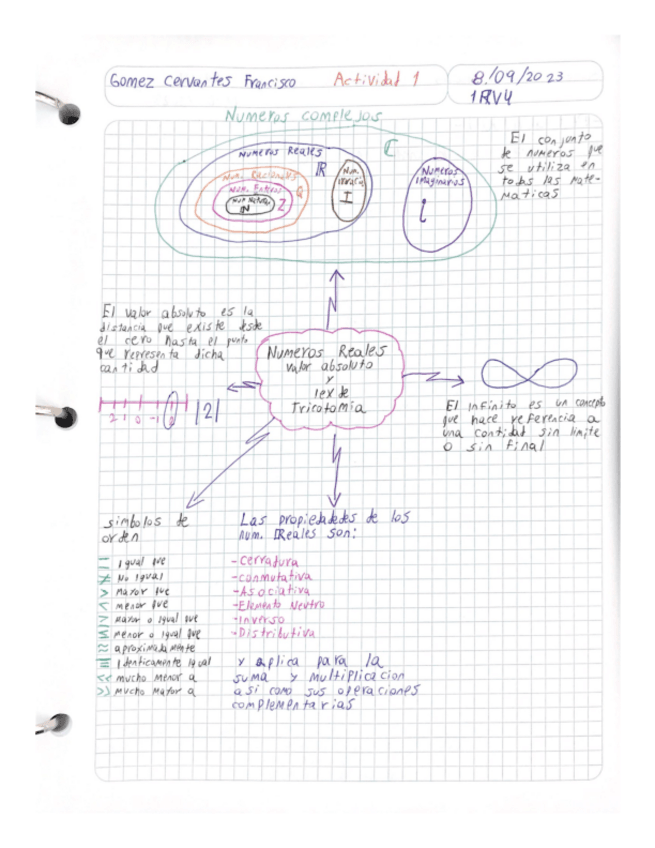 Gomez Cervantes Francisco Actividad 1 8/09/2023
1RV4
Numeros complejos
El conjunto
de numeros que
se utiliza en
todas las mate-
maticas
C
Numeros Reales
R
Num. Racionales
Q
Num. Enteros
Z
Num Natural
N
Num.
I
Numeros
Imaginarios
i
El valor absoluto es la
distancia que existe desde
el cero hasta el punto
que representa dicha
cantidad
2 1 0 -1 2 |2|
Numeros Reales
valor absoluto
y
lex de
Tricotomia
El infinito es un concepto
que hace referencia a
una contidad sin limite
o sin final
simbolos de
orden
= igual que
≠ No igual
> mayor que
< menor que
≥ mayor o igual que
≤ menor o igual que
≈ aproximadamente
≡ identicamente igual
<< mucho menor a
>> mucho mayor a
Las propiedades de los
num. Reales son:
-Cerradura
-conmutativa
-Asociativa
-Elemento Neutro
-Inverso
-Distributiva
y aplica para la
suma y multiplicacion
asi como sus operaciones
complementarias